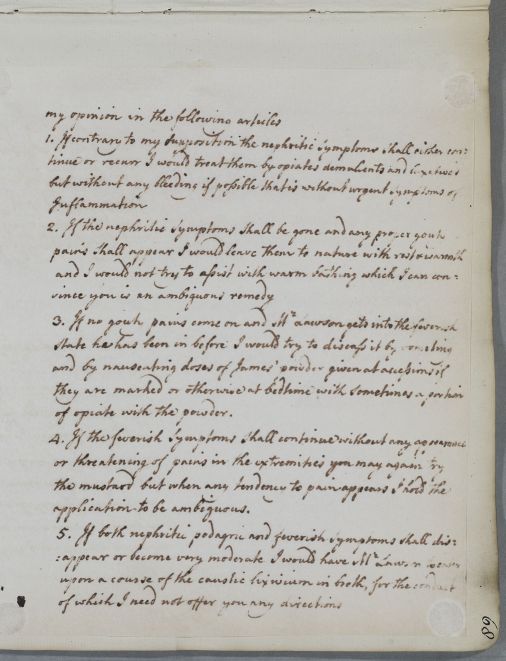 my opinion in the following articles
1. If contrary to my Supposition the nephritic Symptoms shall either con=
tinue or recurr I would treat them by opiates demulcents and laxatives
but without any bleeding if possible that is without urgent Symptoms of
Inflammation
2. If the nephritic Symptoms shall be gone and any proper gouty
pains shall appear I would leave them to nature with rest & warmth
and I would not try to assist with warm bathing which I can con=
vince you is an ambiguous remedy
3. If no gouty pains come on and Mr Lawson gets into the feverish
state he has been in before I would try to discuss it by vomiting
and by nauseating doses of James' powder given at accessions if
they are marked or otherwise at bedtime with sometimes a portion
of opiate with the powder.
4. If the feverish Symptoms shall continue without any appearance
or threatening of pains in the extremities you may again try
the mustard but when any tendency to pain appears I hold the
application to be ambiguous.
5. If both nephritic podagric and feverish Symptoms shall dis=
=appear or become very moderate I would have Mr Lawson
upon a course of the caustic lixivium in broth, for the conduct
of which I need not offer you any directions
68